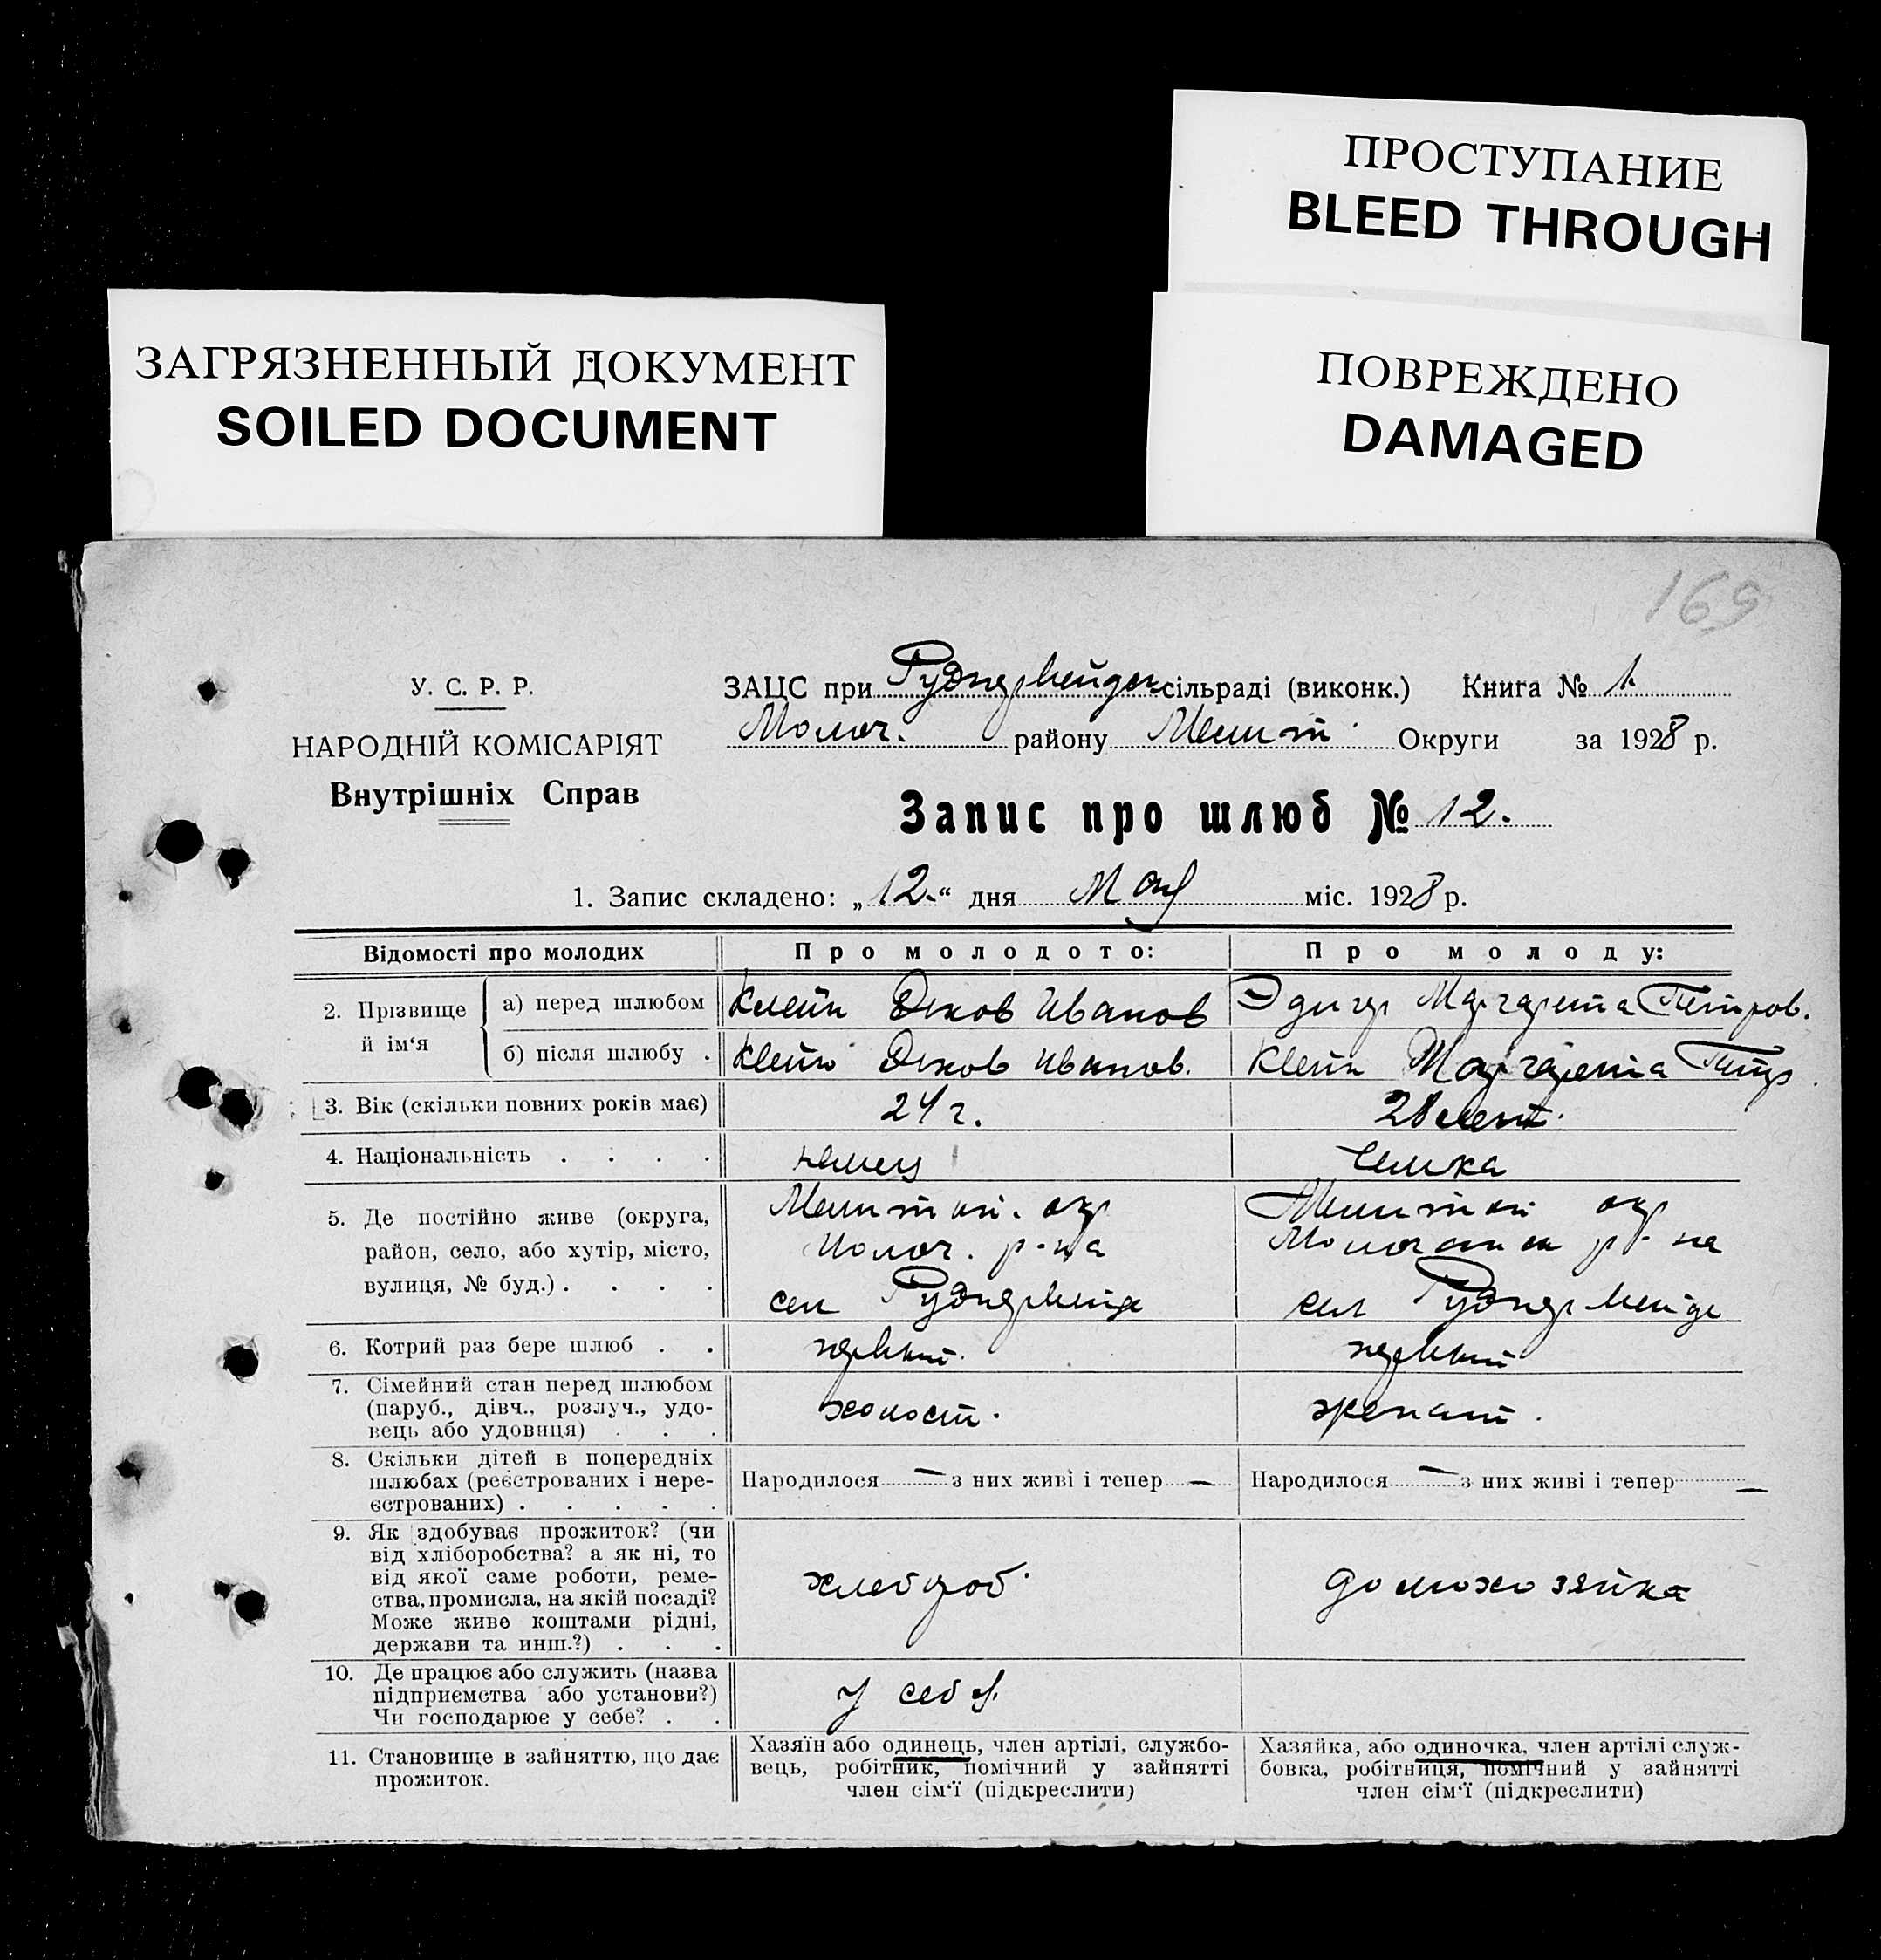 ПРОСТУПАНИЕ
BLEED THROUGH
ЗАГРЯЗНЕННЫЙ ДОКУМЕНТ
SOILED DOCUMENT
ПОВРЕЖДЕНО
DAMAGED
169
У. С. Р. Р.
НАРОДНІЙ КОМІСАРІЯТ
Внутрішніх Справ
ЗАЦС при Руднервейден сільраді (виконк.) Книга № 1.
Молоч. району Мелит. Округи за 1928 р.
Запис про шлюб № 12.
1. Запис складено: „12.“ дня Мая міс. 1928 р.
Відомості про молодих Про молодого: Про молоду:
2. Прізвище й ім‘я
а) перед шлюбом Клейн Яков Иванов Эдигер Маргарета Петров.
б) після шлюбу . Клейн Яков Иванов. Клейн Маргарета Петр
3. Вік (скільки повних років має) 24 г. 28 лет.
4. Національність . . . . немец немка
5. Де постійно живе (округа,
район, село, або хутір, місто,
вулиця, № буд.) . . . .
Мелитоп. окр
Молоч. р-на
сел Руднервейде
Мелитоп окр
Молочанск р-на
сел Руднервейде
6. Котрий раз бере шлюб . . первый. первый
7. Сімейний стан перед шлюбом
(паруб., дівч., розлуч., удо-
вець або удовиця) . . .
холост. женат.
8. Скільки дітей в попередніх
шлюбах (реєстрованих і нере-
єстрованих) . . . . .
Народилося — з них живі і тепер — Народилося — з них живі і тепер —
9. Як здобуває прожиток? (чи
від хліборобства? а як ні, то
від якої саме роботи, реме-
ства, промисла, на якій посаді?
Може живе коштами рідні,
держави та инш.?) . . .
хлебороб. домохозяйка
10. Де працює або служить (назва
підприємства або установи?)
Чи господарює у себе? . .
у себя.
11. Становище в зайняттю, що дає
прожиток.
Хазяїн або одинець, член артілі, службо-
вець, робітник, помічний у зайнятті
член сім‘ї (підкреслити)
Хазяйка, або одиночка, член артілі служ-
бовка, робітниця, помічний у зайнятті
член сім‘ї (підкреслити)